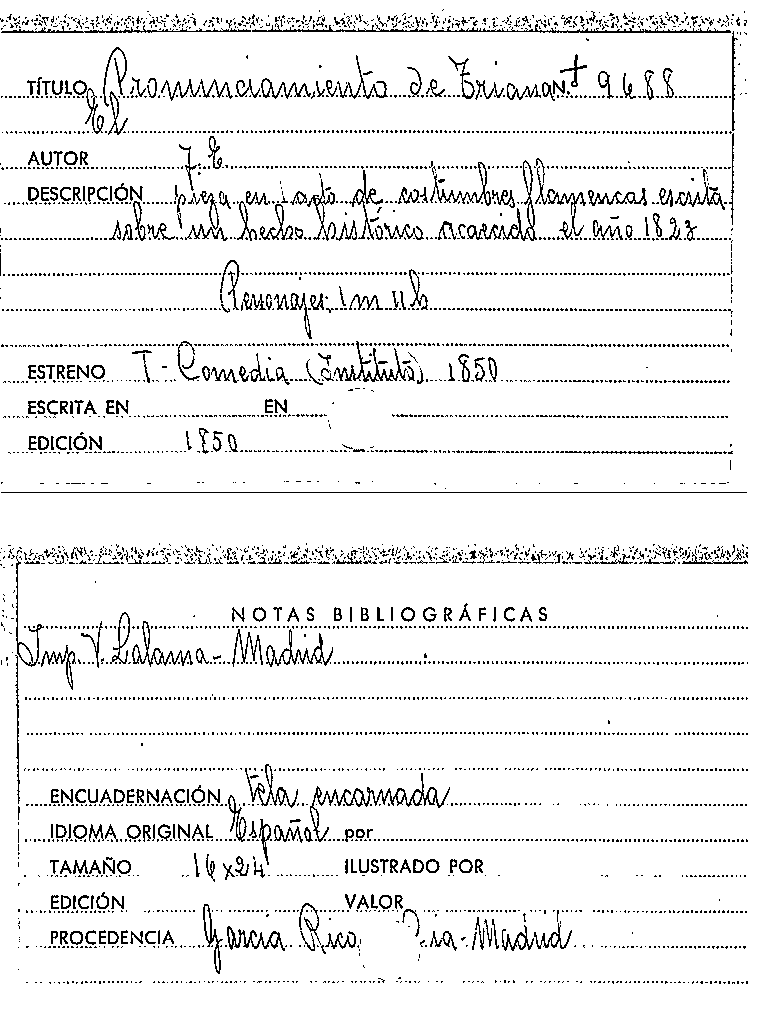 TÍTULO Pronunciamiento de Triana N.º 9688
El
AUTOR J. E.
DESCRIPCIÓN pieza en 1 acto de costumbres flamencas escrita
sobre un hecho histórico acaecido el año 1823
Personajes: 1 m 11 h
ESTRENO T - Comedia (Instituto) 1850
ESCRITA EN EN
EDICIÓN 1850
NOTAS BIBLIOGRÁFICAS
Imp. V. Lalama - Madrid
ENCUADERNACIÓN Tela encarnada
IDIOMA ORIGINAL Español por
TAMAÑO 16 x 24 ILUSTRADO POR
EDICIÓN VALOR
PROCEDENCIA García Rico - Madrid